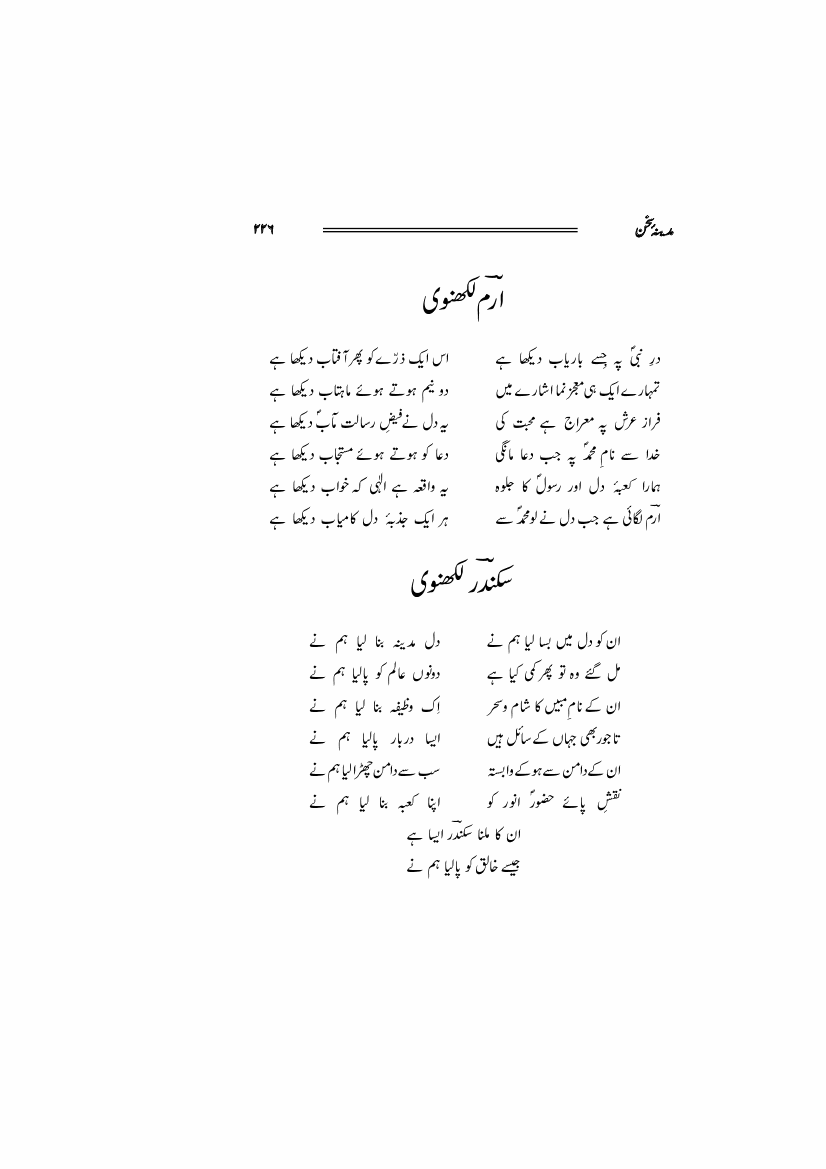 مدینۂ سخن ۲۲۶
ارمؔ لکھنوی
درِ نبیؐ پہ جسے باریاب دیکھا ہے اس ایک ذرّے کو پھر آفتاب دیکھا ہے
تمہارے ایک ہی معجز نما اشارے میں دو نیم ہوتے ہوئے ماہتاب دیکھا ہے
فراز عرش پہ معراج ہے محبت کی یہ دل نے فیضِ رسالت مآبؐ دیکھا ہے
خدا سے نامِ محمدؐ پہ جب دعا مانگی دعا کو ہوتے ہوئے مستجاب دیکھا ہے
ہمارا کعبۂ دل اور رسولؐ کا جلوہ یہ واقعہ ہے الٰہی کہ خواب دیکھا ہے
ارمؔ لگائی ہے جب دل نے لو محمدؐ سے ہر ایک جذبۂ دل کامیاب دیکھا ہے
سکندرؔ لکھنوی
ان کو دل میں بسا لیا ہم نے دل مدینہ بنا لیا ہم نے
مل گئے وہ تو پھر کمی کیا ہے دونوں عالم کو پالیا ہم نے
ان کے نامِ مبیں کا شام وسحر اِک وظیفہ بنا لیا ہم نے
تاجور بھی جہاں کے سائل ہیں ایسا دربار پالیا ہم نے
ان کے دامن سے ہوکے وابستہ سب سے دامن چھڑا لیا ہم نے
نقشِ پائے حضورؐ انور کو اپنا کعبہ بنا لیا ہم نے
ان کا ملنا سکندرؔ ایسا ہے
جیسے خالق کو پالیا ہم نے